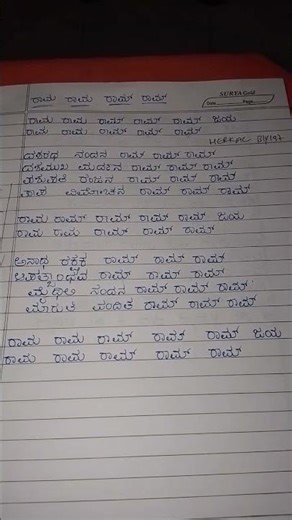 SURYA Gold
Date            Page
ರಾಮ ರಾಮ ರಾಮ್ ರಾಮ್
ರಾಮ ರಾಮ ರಾಮ್ ರಾಮ್ ರಾಮ್ ಜಯ
ರಾಮ ರಾಮ ರಾಮ್ ರಾಮ್ ರಾಮ್
ದಶರಥ ನಂದನ ರಾಮ್ ರಾಮ್ ರಾಮ್
ದಶಮುಖ ಮರ್ದನ ರಾಮ್ ರಾಮ್ ರಾಮ್
ಪಶುಪತಿ ರಂಜನ ರಾಮ್ ರಾಮ್ ರಾಮ್
ಪಾಪ ವಿಮೋಚನ ರಾಮ್ ರಾಮ್ ರಾಮ್
ರಾಮ ರಾಮ್ ರಾಮ್ ರಾಮ್ ರಾಮ್ ಜಯ
ರಾಮ ರಾಮ ರಾಮ್ ರಾಮ್ ರಾಮ್
ಅನಾಥ ರಕ್ಷಕ ರಾಮ್ ರಾಮ್ ರಾಮ್
ಆಪತ್ಬಾಂಧವ ರಾಮ್ ರಾಮ್ ರಾಮ್
ಮೈಥಿಲೀ ನಂದನ ರಾಮ್ ರಾಮ್ ರಾಮ್
ಮಾರುತಿ ವಂದಿತ ರಾಮ್ ರಾಮ್ ರಾಮ್
ರಾಮ ರಾಮ ರಾಮ್ ರಾಮ್ ರಾಮ್ ಜಯ
ರಾಮ ರಾಮ ರಾಮ್ ರಾಮ್ ರಾಮ್